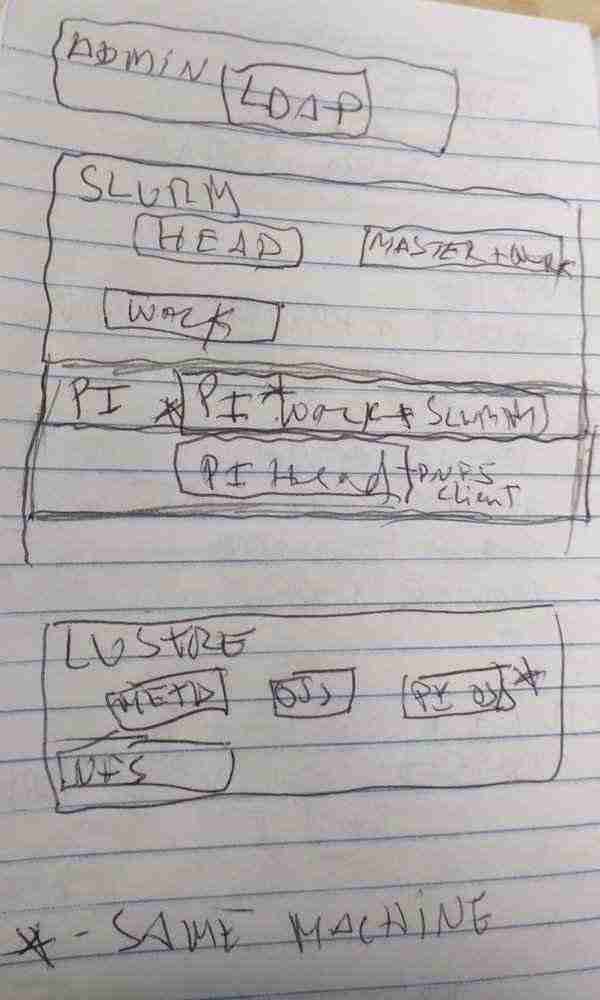 ADMIN LDAP
SLURM
HEAD MASTER + WORK
WORK
PI * PI + WORK + SLURM
PI Head + PNFS
client
LUSTRE
META OSS PI OSS *
NFS
* - SAME MACHINE